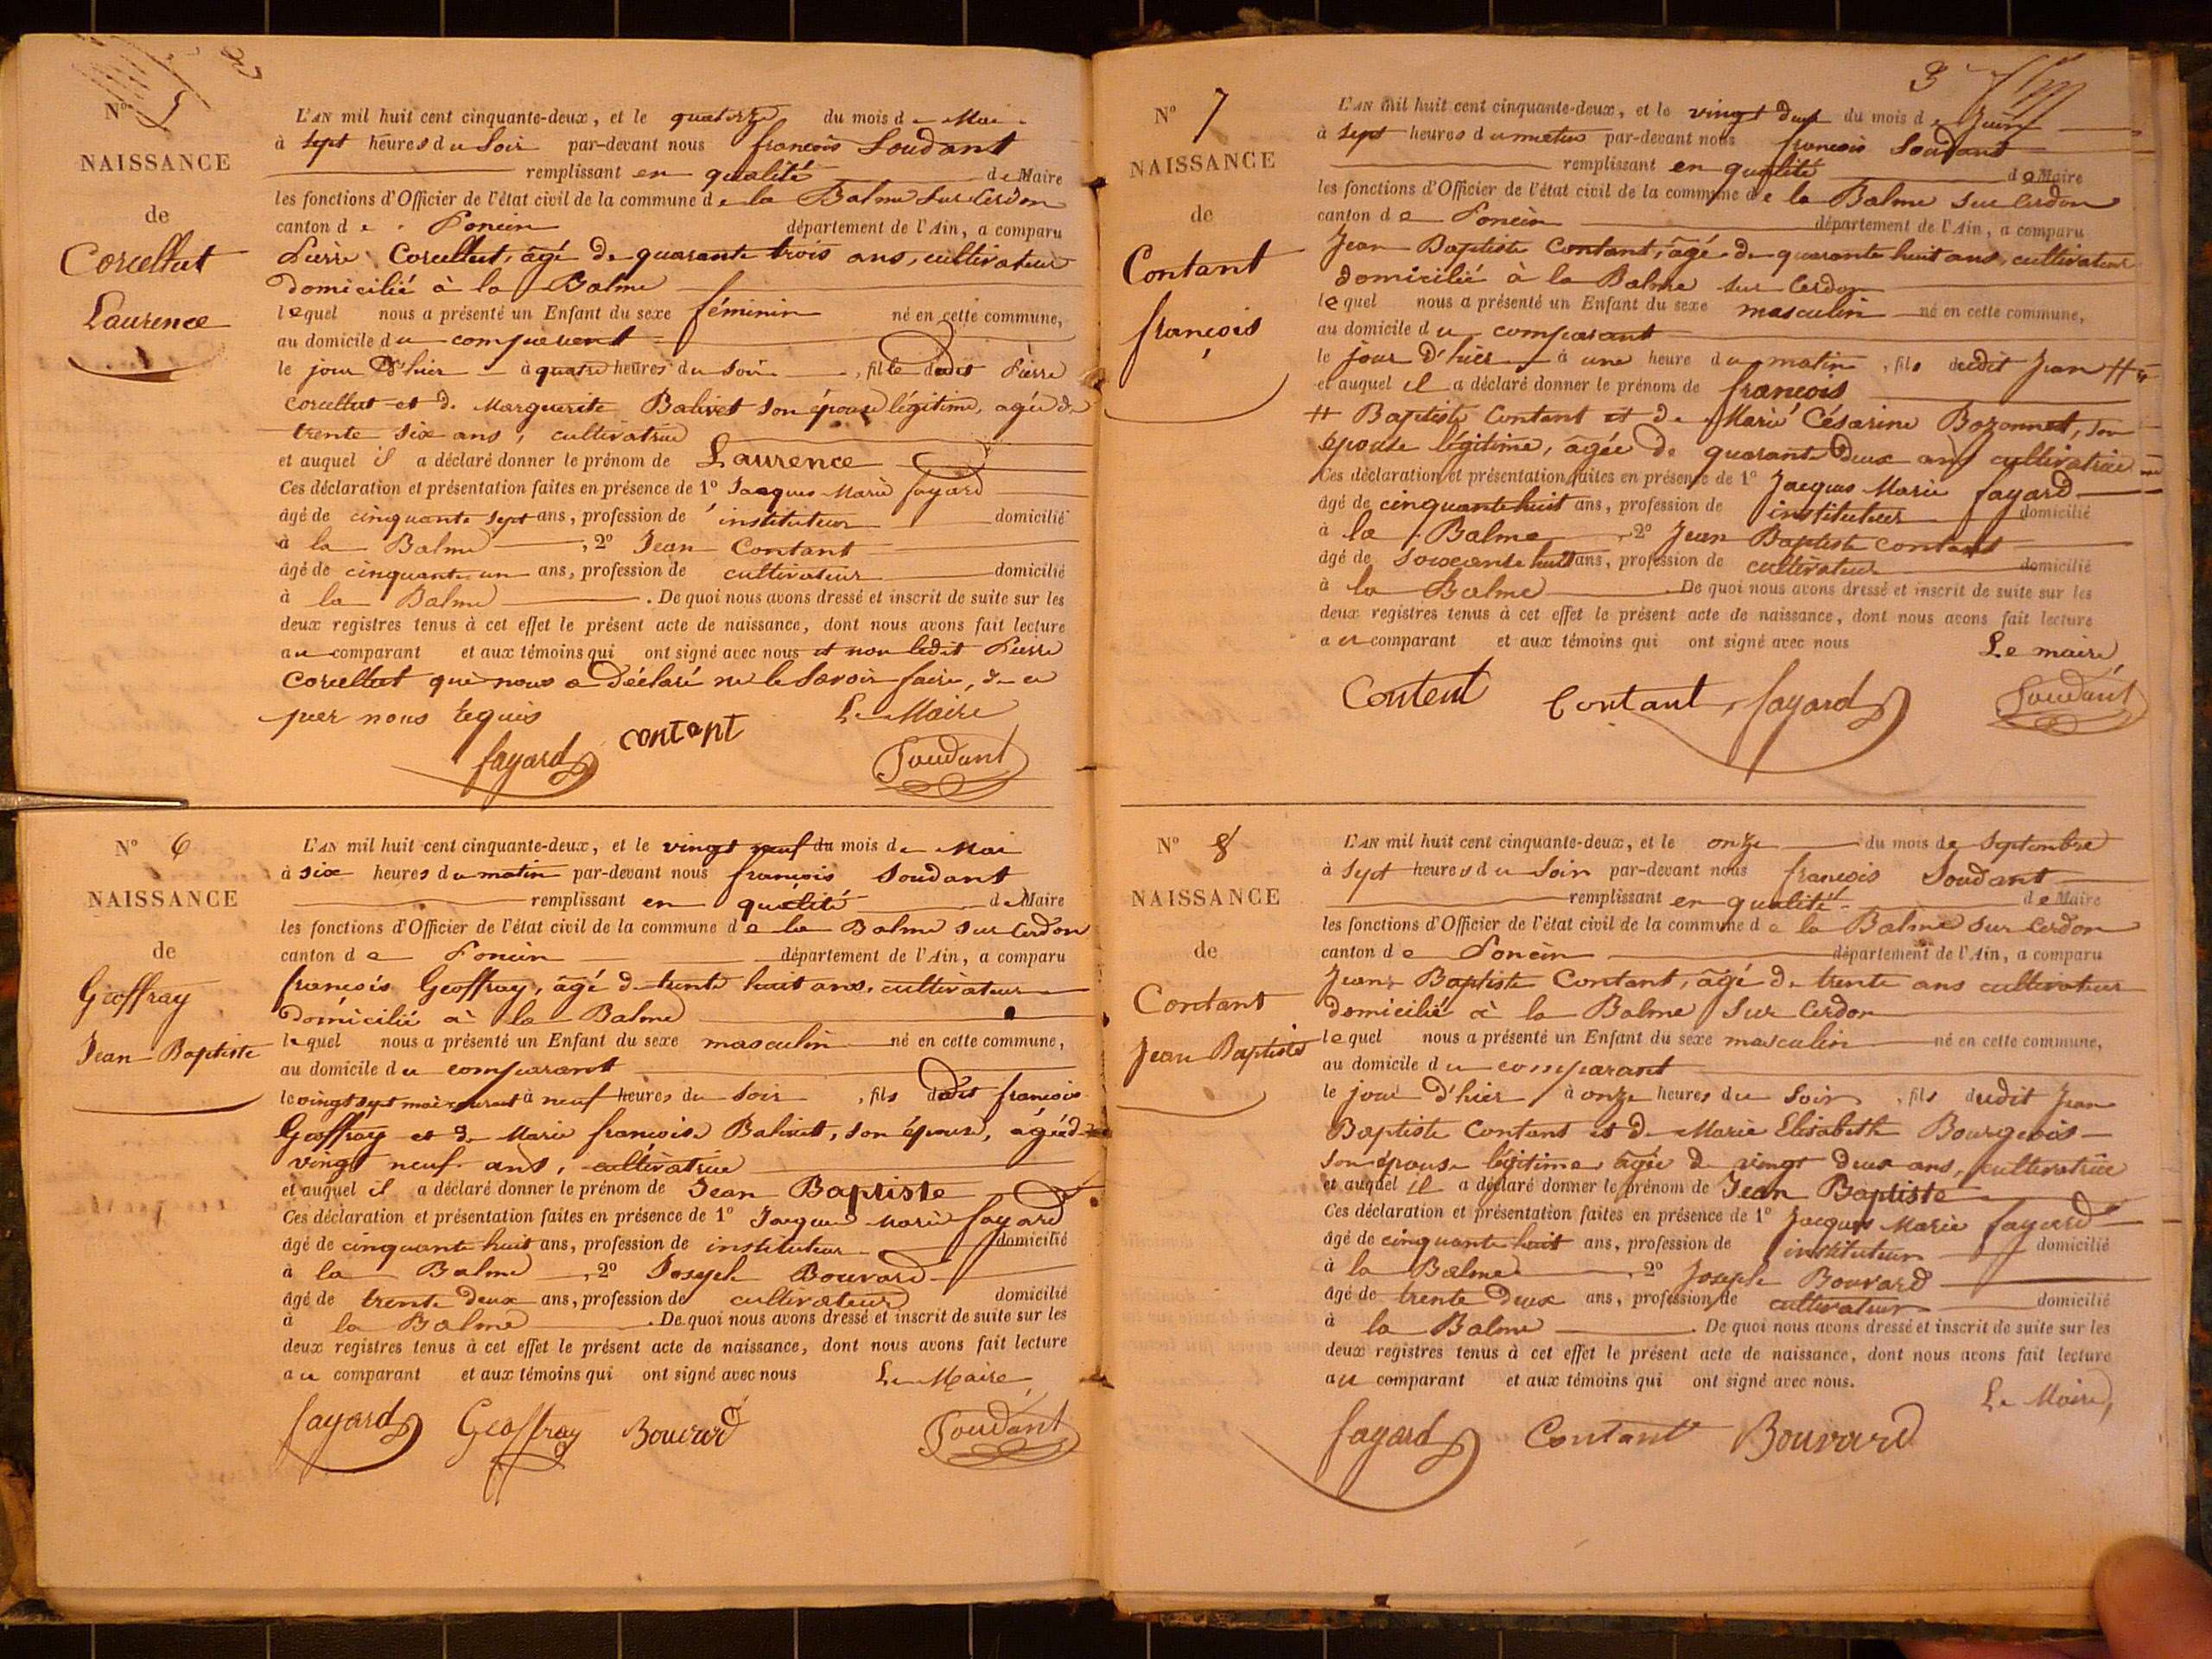 N° 5
NAISSANCE
de
Corcellut
Laurence
L'AN mil huit cent cinquante-deux, et le quatorze du mois de Mai
à sept heures du soir par-devant nous françois Soudant
remplissant en qualité de Maire
les fonctions d'Officier de l'état civil de la commune de la Balme sur Cerdon
canton de Poncin département de l'Ain, a comparu
Pierre Corcellut, âgé de quarante trois ans, cultivateur
domicilié à la Balme
lequel nous a présenté un Enfant du sexe féminin né en cette commune,
au domicile du comparent
le jour d'hier à quatre heures du soir, fille dudit Pierre
Corcellut et de Marguerite Balivet son épouse légitime, agée de
trente six ans, cultivatrice
et auquel il a déclaré donner le prénom de Laurence
Ces déclaration et présentation faites en présence de 1° Jacques Marie fayard
âgé de cinquante sept ans, profession de instituteur domicilié
à la Balme, 2° Jean Contant
âgé de cinquante un ans, profession de cultivateur domicilié
à la Balme. De quoi nous avons dressé et inscrit de suite sur les
deux registres tenus à cet effet le présent acte de naissance, dont nous avons fait lecture
au comparant et aux témoins qui ont signé avec nous et non ledit Pierre
Corcellut qui nous a déclaré ne le savoir faire, de ce
par nous requis Le Maire
fayard contant Soudant
N° 6
NAISSANCE
de
Geoffray
Jean Baptiste
L'AN mil huit cent cinquante-deux, et le vingt neuf du mois de Mai
à six heures du matin par-devant nous françois Soudant
remplissant en qualité de Maire
les fonctions d'Officier de l'état civil de la commune de la Balme sur Cerdon
canton de Poncin département de l'Ain, a comparu
françois Geoffray, âgé de trente huit ans, cultivateur
domicilié à la Balme
lequel nous a présenté un Enfant du sexe masculin né en cette commune,
au domicile du comparant
le vingt sept mai courant à neuf heures du soir, fils dudit françois
Geoffray et de Marie françoise Balivet, son épouse, agée de
vingt neuf ans, cultivatrice
et auquel il a déclaré donner le prénom de Jean Baptiste
Ces déclaration et présentation faites en présence de 1° Jacques Marie fayard
âgé de cinquante huit ans, profession de instituteur domicilié
à la Balme, 2° Joseph Bouvard
âgé de trente deux ans, profession de cultivateur domicilié
à la Balme. De quoi nous avons dressé et inscrit de suite sur les
deux registres tenus à cet effet le présent acte de naissance, dont nous avons fait lecture
au comparant et aux témoins qui ont signé avec nous Le Maire
fayard Geoffray Bouvard Soudant
3
N° 7
NAISSANCE
de
Contant
françois
L'AN mil huit cent cinquante-deux, et le vingt deux du mois de Juin
à sept heures du matin par-devant nous françois Soudant
remplissant en qualité de Maire
les fonctions d'Officier de l'état civil de la commune de la Balme sur Cerdon
canton de Poncin département de l'Ain, a comparu
Jean Baptiste Contant, âgé de quarante huit ans, cultivateur
domicilié à la Balme sur Cerdon
lequel nous a présenté un Enfant du sexe masculin né en cette commune,
au domicile du comparant
le jour d'hier à une heure du matin, fils dudit Jean #
et auquel il a déclaré donner le prénom de françois
# Baptiste Contant et de Marie Césarine Bozonnet, son
épouse légitime, agée de quarante deux ans cultivatrice
Ces déclaration et présentation faites en présence de 1° Jacques Marie fayard
âgé de cinquante huit ans, profession de instituteur domicilié
à la Balme, 2° Jean Baptiste Contant
âgé de soixante huit ans, profession de cultivateur domicilié
à la Balme. De quoi nous avons dressé et inscrit de suite sur les
deux registres tenus à cet effet le présent acte de naissance, dont nous avons fait lecture
au comparant et aux témoins qui ont signé avec nous Le maire,
Content Contant fayard Soudant
N° 8
NAISSANCE
de
Contant
Jean Baptiste
L'AN mil huit cent cinquante-deux, et le onze du mois de Septembre
à sept heures du soir par-devant nous françois Soudant
remplissant en qualité de Maire
les fonctions d'Officier de l'état civil de la commune de la Balme sur Cerdon
canton de Poncin département de l'Ain, a comparu
Jean Baptiste Contant, âgé de trente ans cultivateur
domicilié à la Balme sur Cerdon
lequel nous a présenté un Enfant du sexe masculin né en cette commune,
au domicile du comparant
le jour d'hier à onze heures du soir, fils dudit Jean
Baptiste Contant et de Marie Elisabeth Bourgeois
son épouse légitime agée de vingt deux ans, cultivatrice
et auquel il a déclaré donner le prénom de Jean Baptiste
Ces déclaration et présentation faites en présence de 1° Jacques Marie fayard
âgé de cinquante huit ans, profession de instituteur domicilié
à la Balme, 2° Joseph Bouvard
âgé de trente deux ans, profession de cultivateur domicilié
à la Balme. De quoi nous avons dressé et inscrit de suite sur les
deux registres tenus à cet effet le présent acte de naissance, dont nous avons fait lecture
au comparant et aux témoins qui ont signé avec nous.
Le Maire,
fayard Contant Bouvard